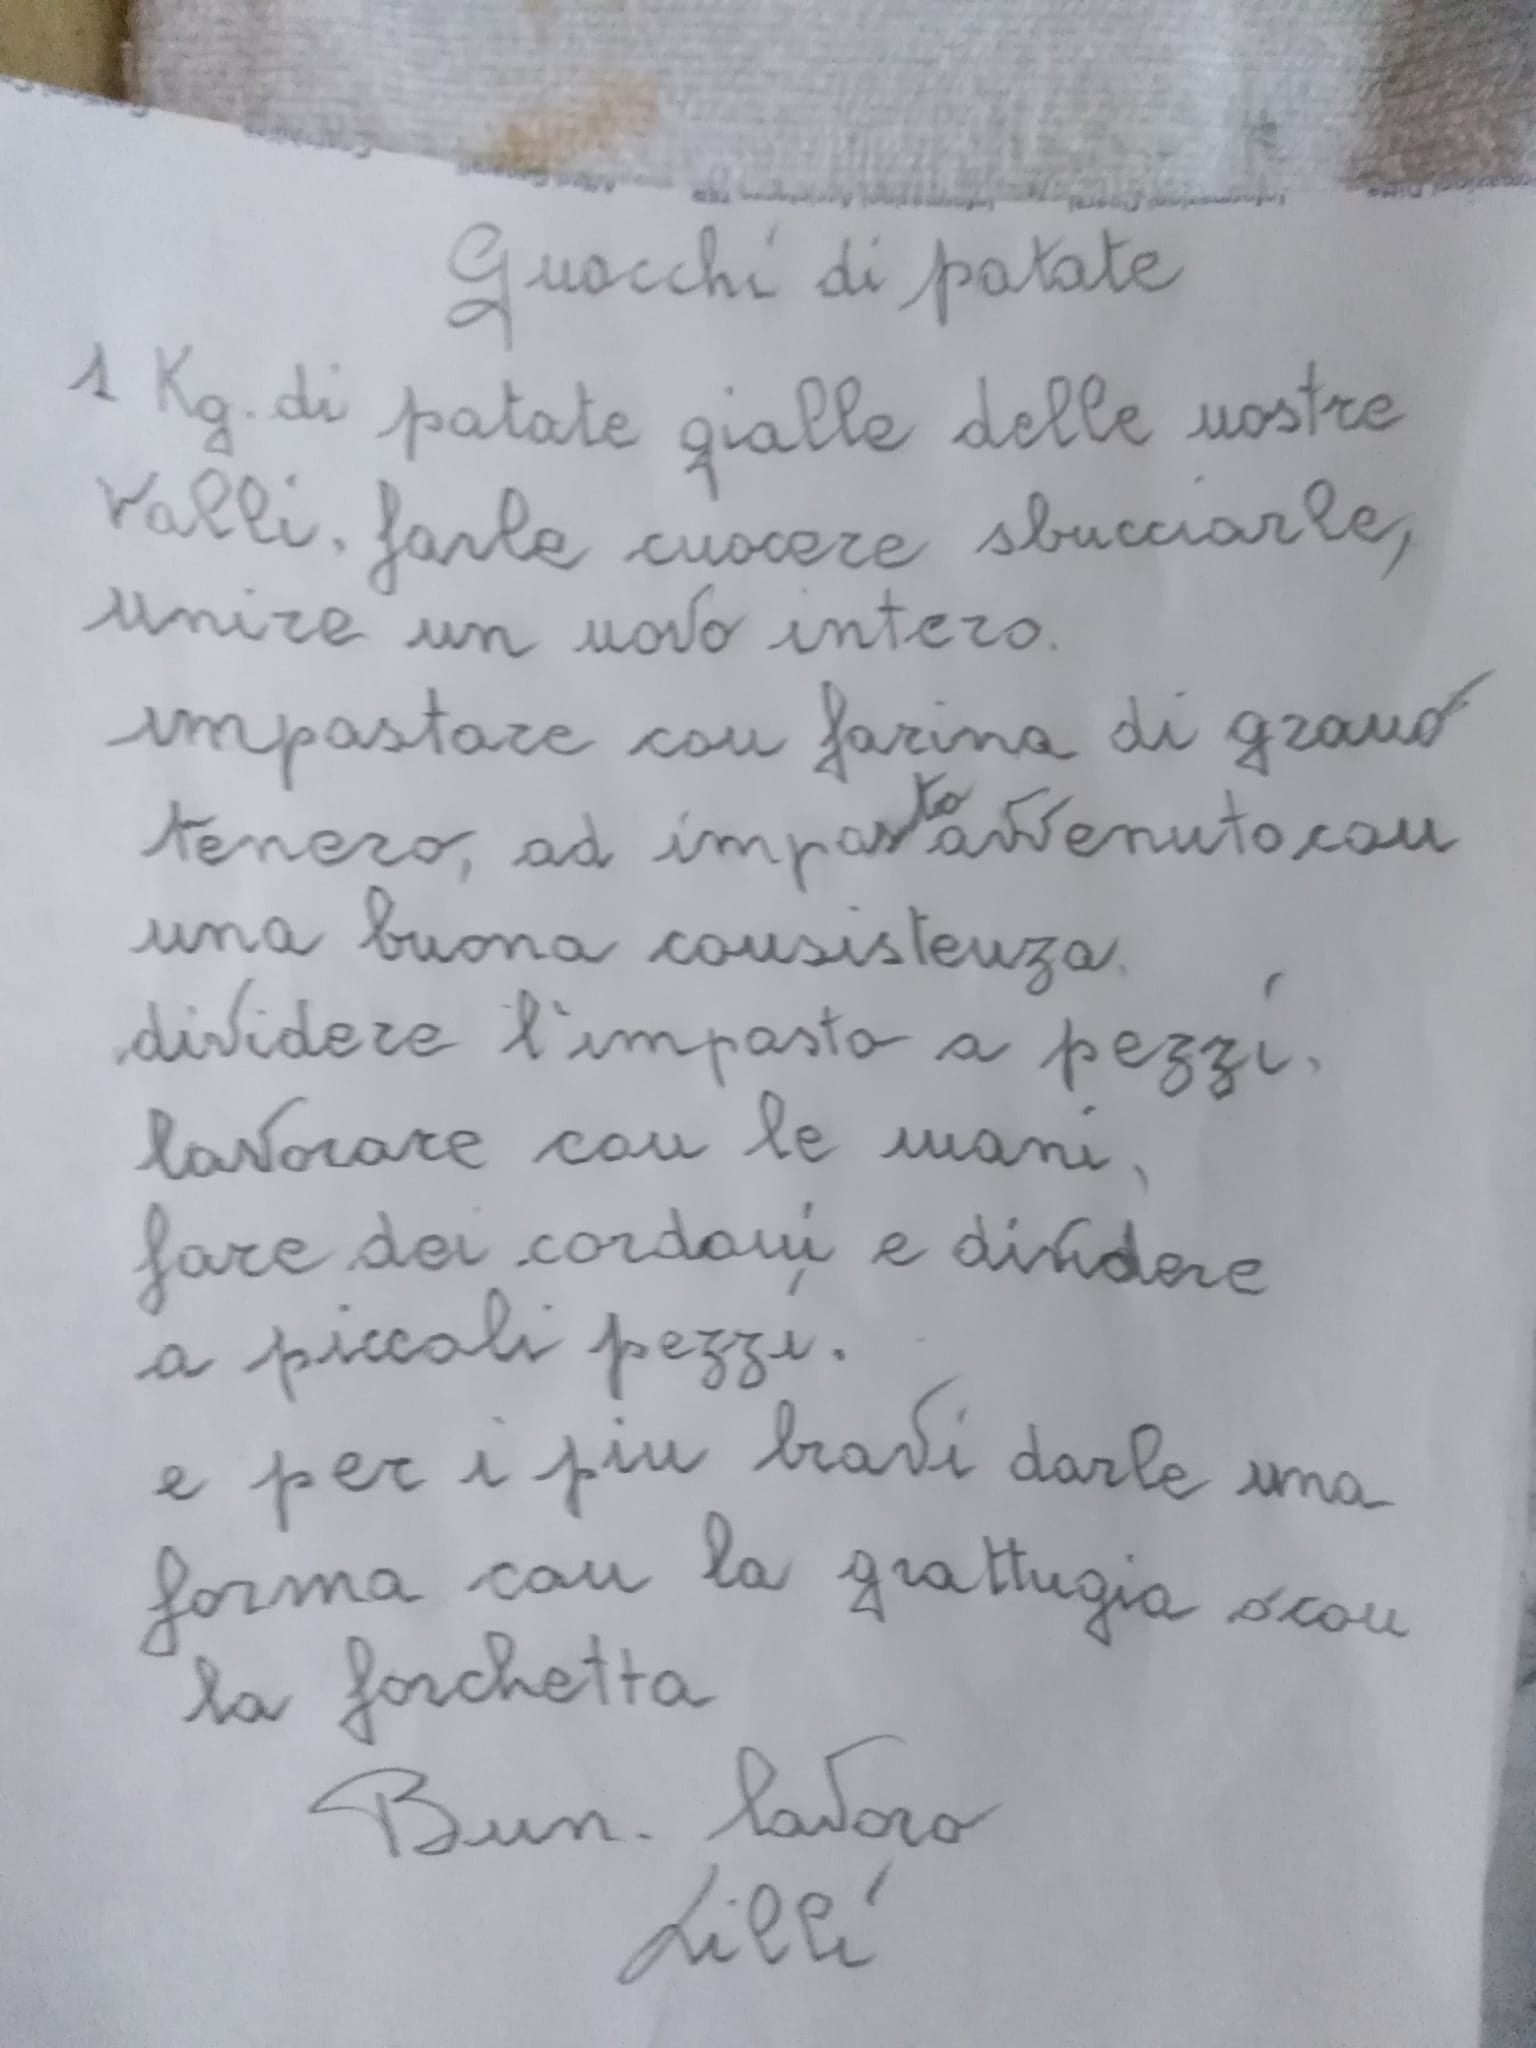 Gnocchi di patate
1 Kg. di patate gialle delle nostre
Valli. farle cuocere sbucciarle,
unire un uovo intero.
impastare con farina di grano
tenero, ad impasto avvenuto con
una buona consistenza.
dividere l'impasto a pezzi.
lavorare con le mani,
fare dei cordoni e dividere
a piccoli pezzi.
e per i piu bravi darle una
forma con la grattugia o con
la forchetta
Bun. lavoro
Lilli